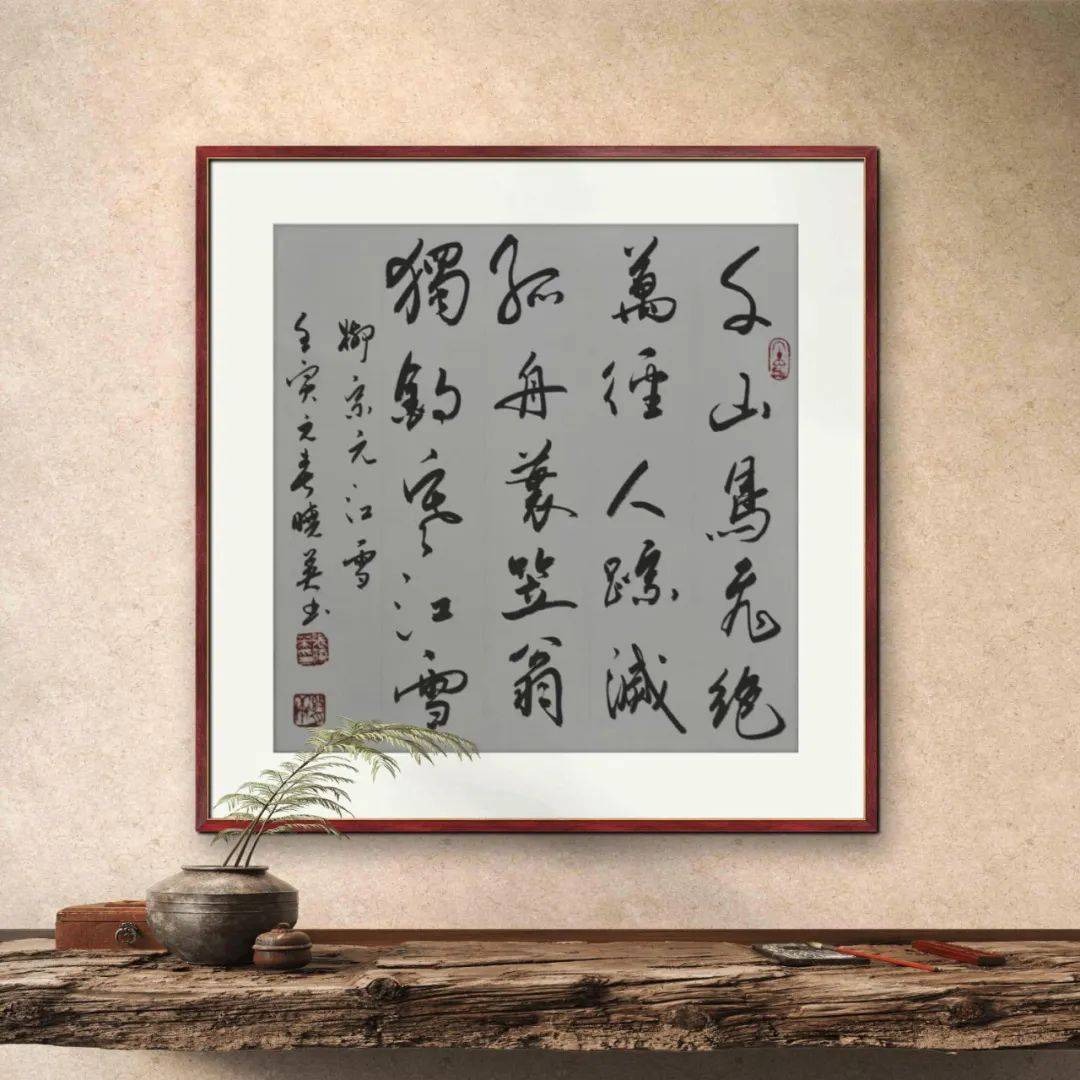 千山鳥飛絕
萬徑人踪滅
孤舟蓑笠翁
獨釣寒江雪
柳宗元江雪
壬寅元春曉英书